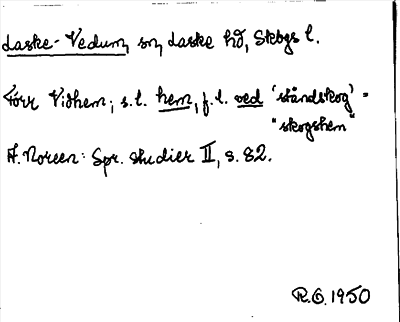 Laske-Vedum, sn, Laske hd, Skbgs l.
Förr Vidhem; s. l. hem, f. l. ved 'ståndskog' =
"skogshem"
A. Noreen: Spr. studier II, s. 82.
R.O. 1950